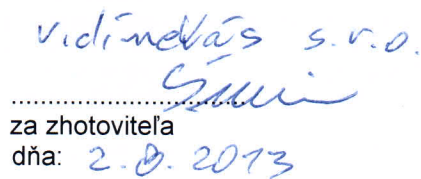 vidímeVás s.r.o.
..............................
za zhotoviteľa
dňa: 2.8.2013